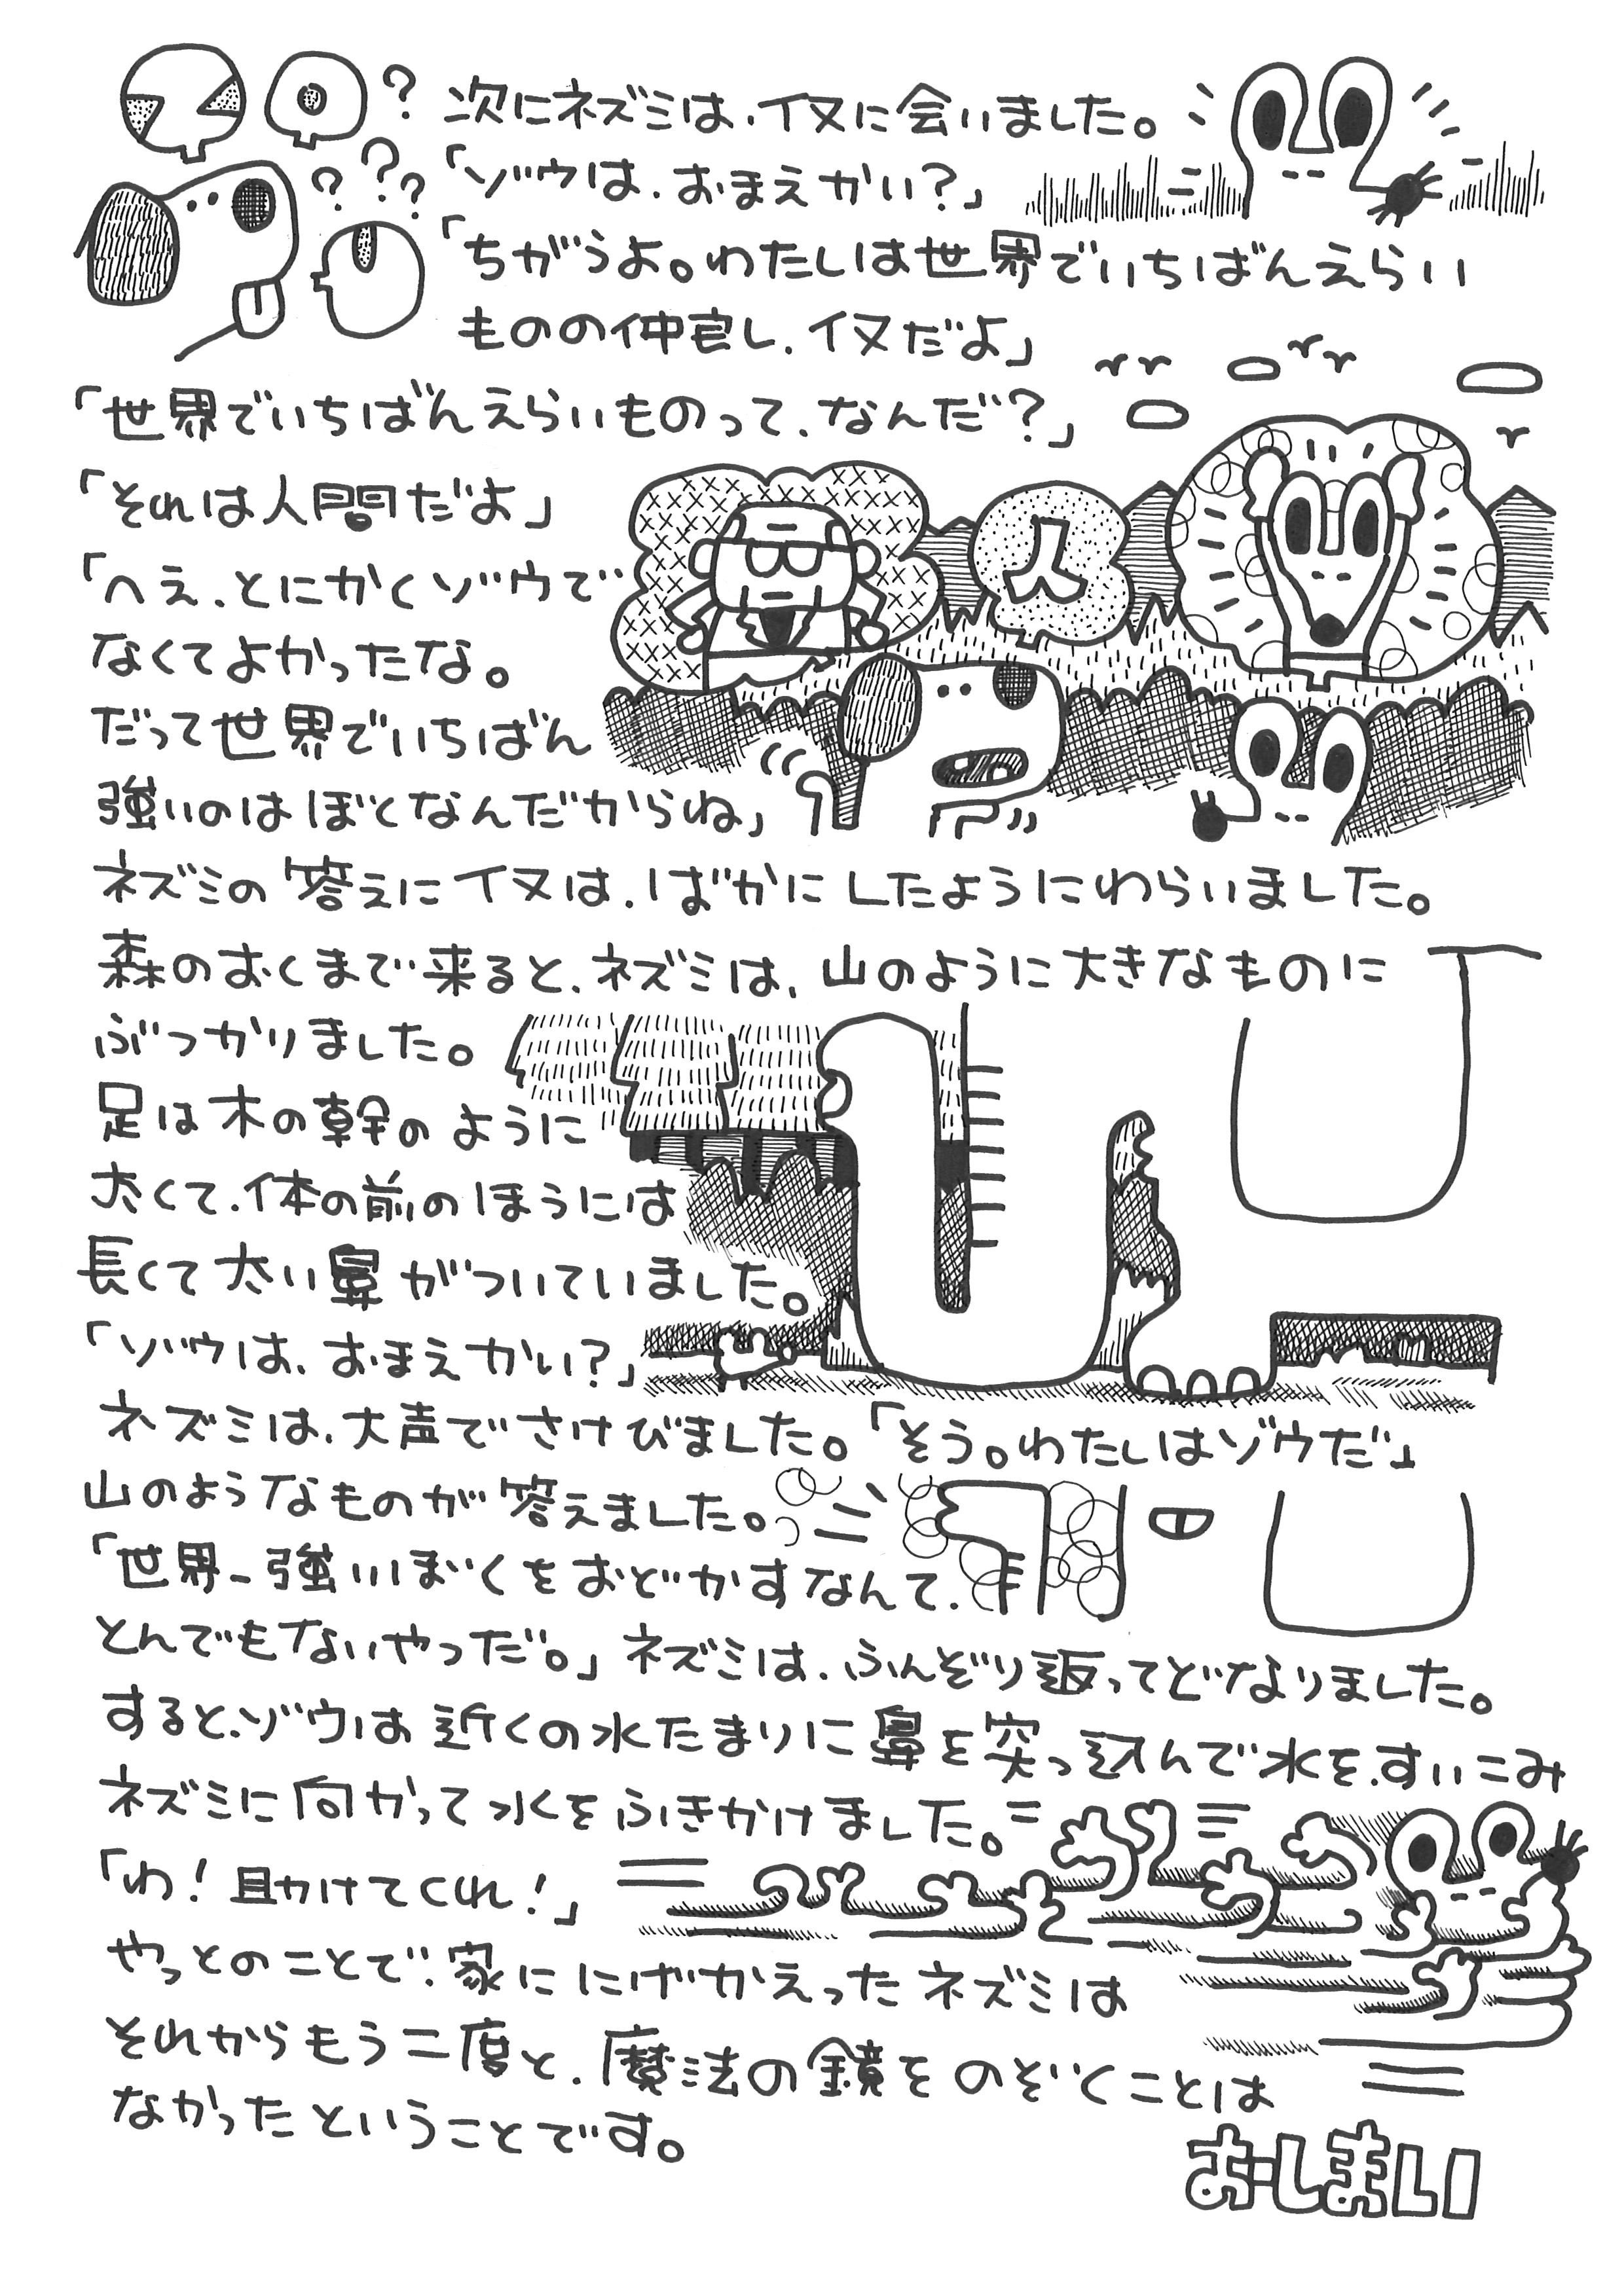 次にネズミは、イヌに会いました。
「ゾウは、おまえかい？」
「ちがうよ。わたしは世界でいちばんえらい
ものの仲良し、イヌだよ」
「世界でいちばんえらいものって、なんだ？」
「それは人間だよ」
「へえ、とにかくゾウで
なくてよかったな。
だって世界でいちばん
強いのはぼくなんだからね」
人
ネズミの答えにイヌは、ばかにしたようにわらいました。
森のおくまで来ると、ネズミは、山のように大きなものに
ぶつかりました。
足は木の幹のように
太くて、体の前のほうには
長くて太い鼻がついていました。
「ゾウは、おまえかい？」
ネズミは、大声でさけびました。「そう。わたしはゾウだ」
山のようなものが答えました。
「世界一強いぼくをおどかすなんて、
とんでもないやつだ。」ネズミは、ふんぞり返ってどなりました。
すると、ゾウは近くの水たまりに鼻を突っ込んで水を、すいこみ
ネズミに向かって水をふきかけました。
「わ！助けてくれ！」
やっとのことで、家ににげかえったネズミは
それからもう二度と、魔法の鏡をのぞくことは
なかったということです。
おしまい